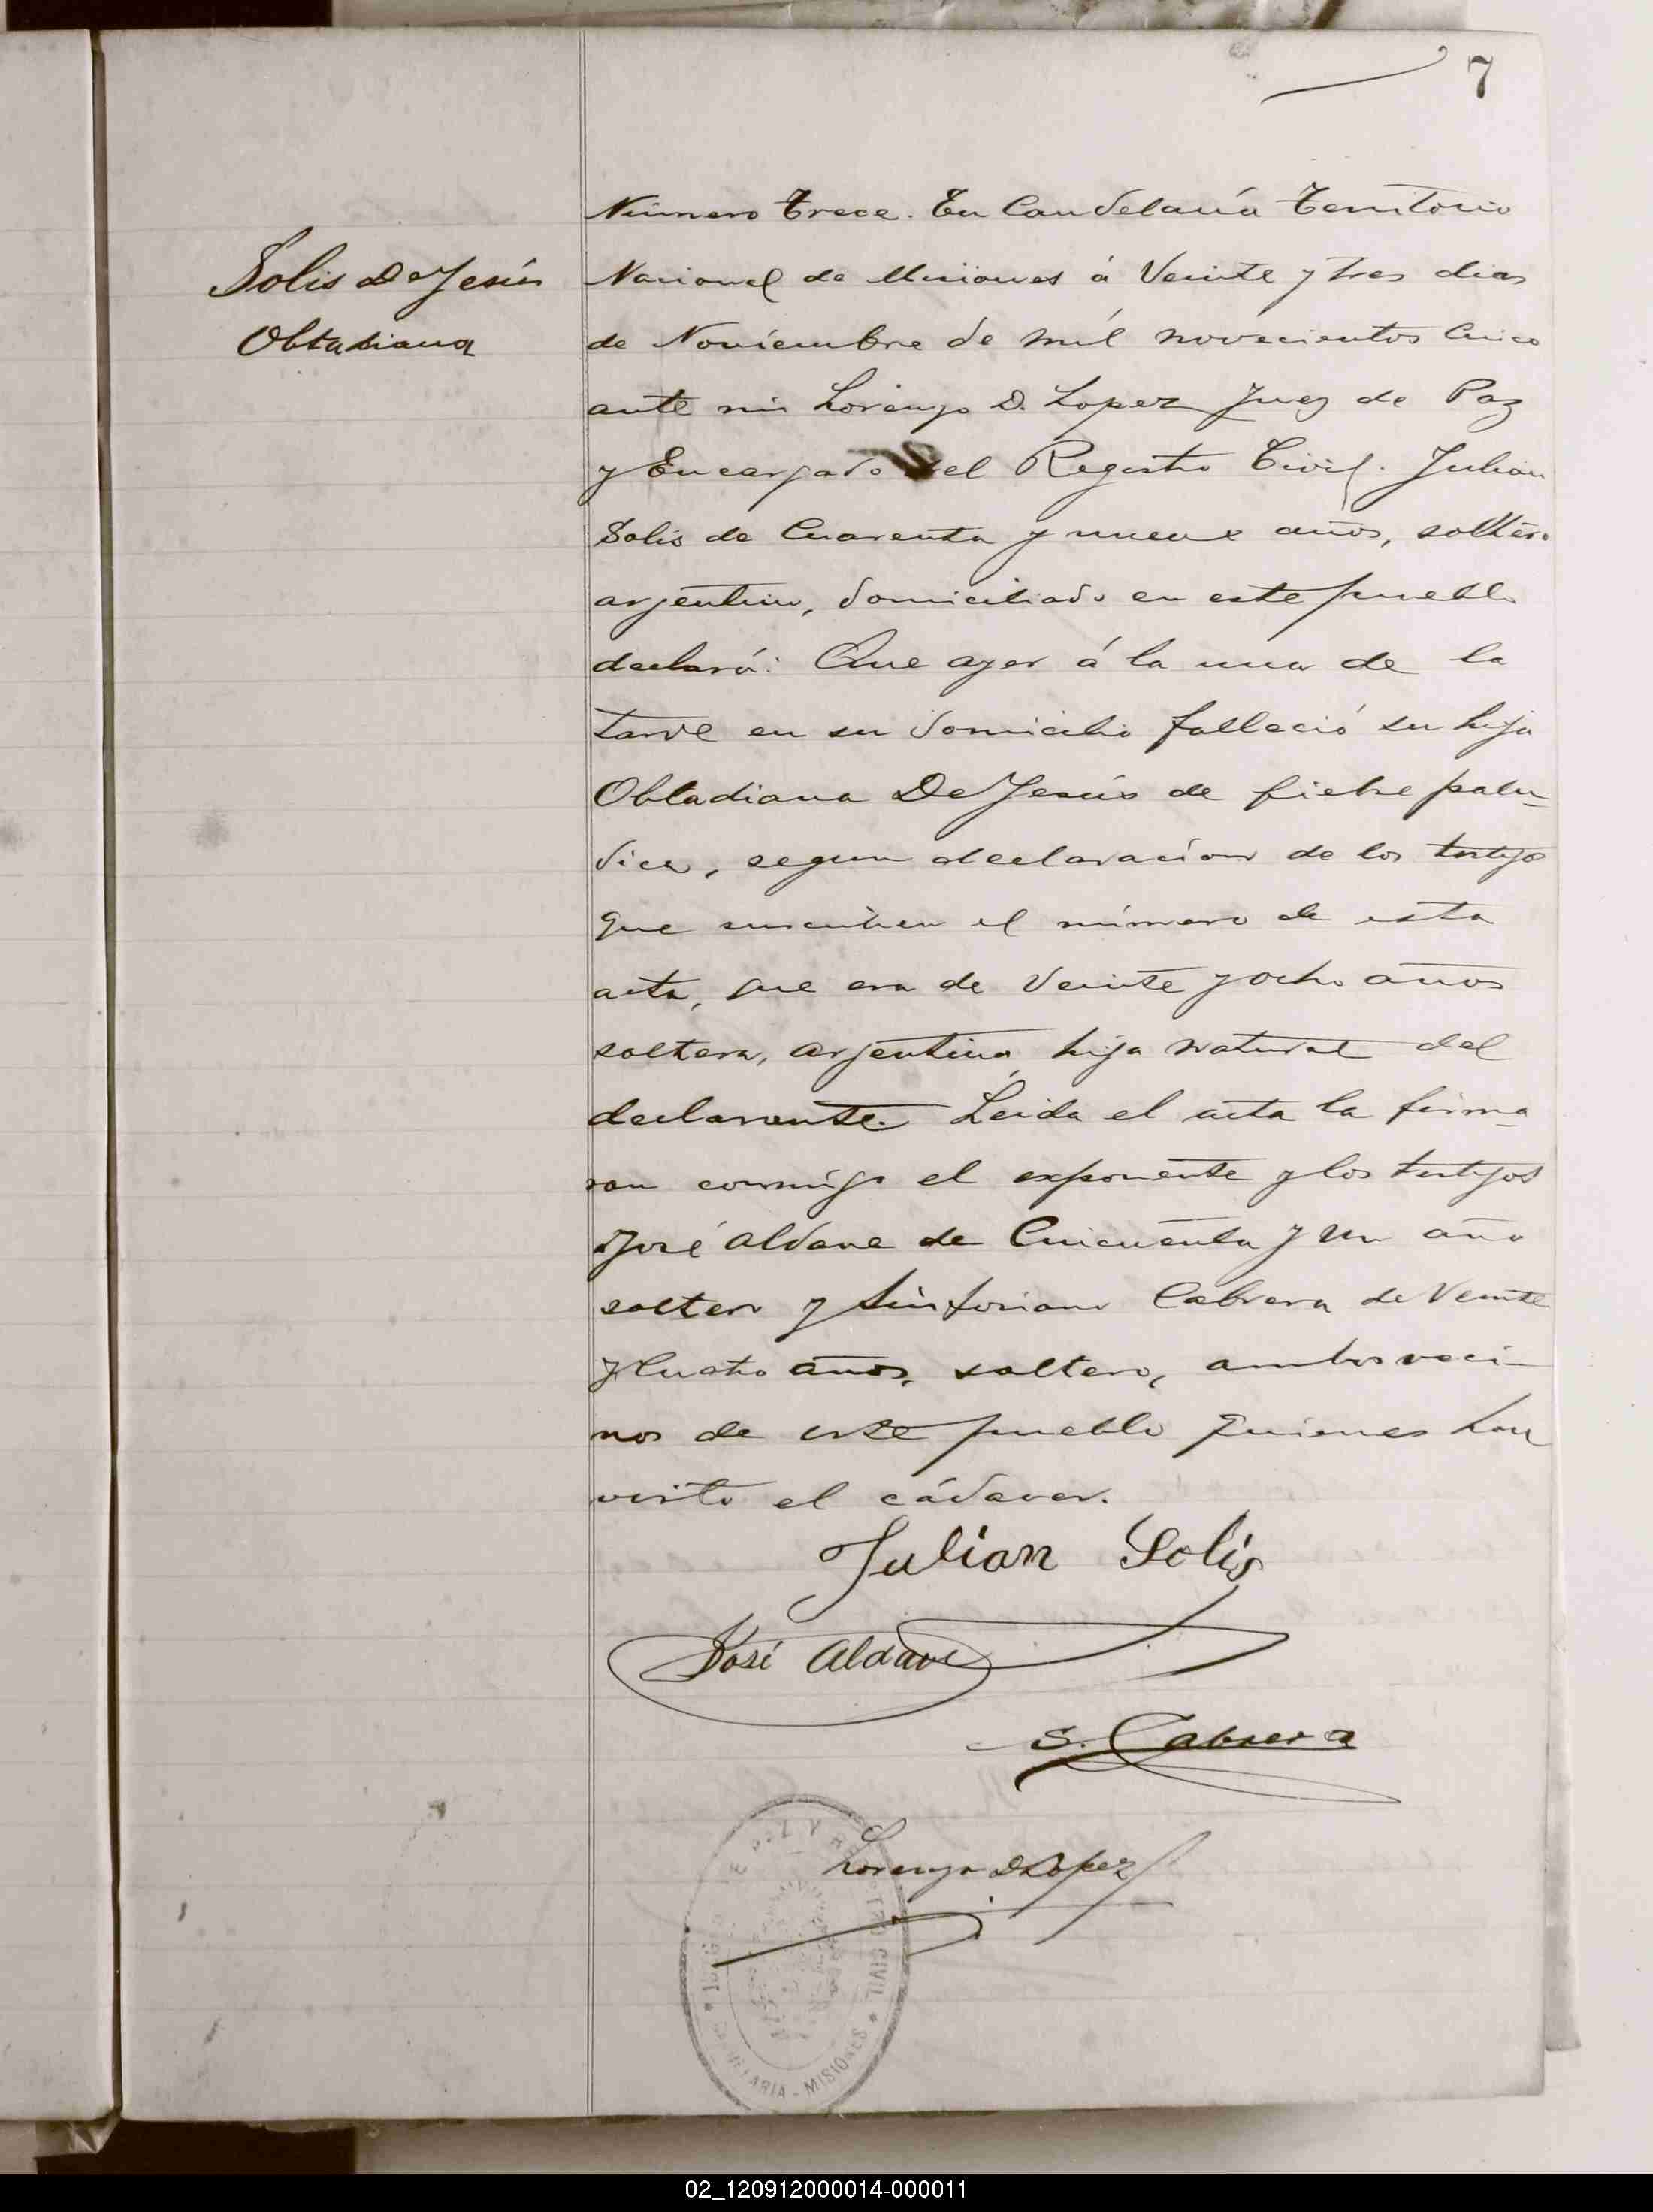 7
Número trece. En Candelaria Territorio
Solis De Jesús
Nacional de Misiones á Veinte y tres dias
Obtadiana
de Noviembre de mil novecientos Cinco
ante mi Lorenzo D. Lopez Juez de Paz
y Encargado del Registro Civil. Julian
Solis de Cuarenta y nueve años, soltero
argentino, domiciliado en este pueblo
declaró: Que ayer á la una de la
tarde en su domicilio falleció su hija
Obtadiana De Jesús de fiebre palu-
dica, segun declaracion de los testigos
que suscriben el número de esta
acta, que era de Veinte y ocho años
soltera, argentina, hija natural del
declarante. Leida el acta la firma-
ron conmigo el exponente y los testigos
José Aldave de Cincuenta y un año
soltero y Sinforiano Cabrera de Veinte
y Cuatro años, soltero, ambos veci-
nos de este pueblo quienes han
visto el cádaver.
Julian Solis
José Aldave
S. Cabrera
Lorenzo D Lopez
JUZGADO DE PAZ Y REGISTRO CIVIL
CANDELARIA - MISIONES
02_120912000014-000011